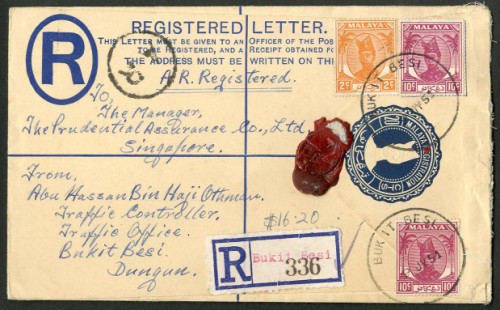 REGISTERED LETTER.
THIS LETTER MUST BE GIVEN TO AN OFFICER OF THE POS
TO BE REGISTERED, AND A RECEIPT OBTAINED FO
THE ADDRESS MUST BE WRITTEN ON THI
R
A.R. Registered.
To,
The Manager,
The Prudential Assurance Co., Ltd,
Singapore.
From,
Abu Hassan Bin Haji Othman,
Traffic Controller,
Traffic Office.
Bukit Besi,
Dungun.
$16-20
R
Bukit Besi
336
MALAYA
2c
2c
MALAYA
10c
10c
BUKIT BESI
MALAYA REGISTRATION
BUKIT BESI
51
MALAYA
10c
10c